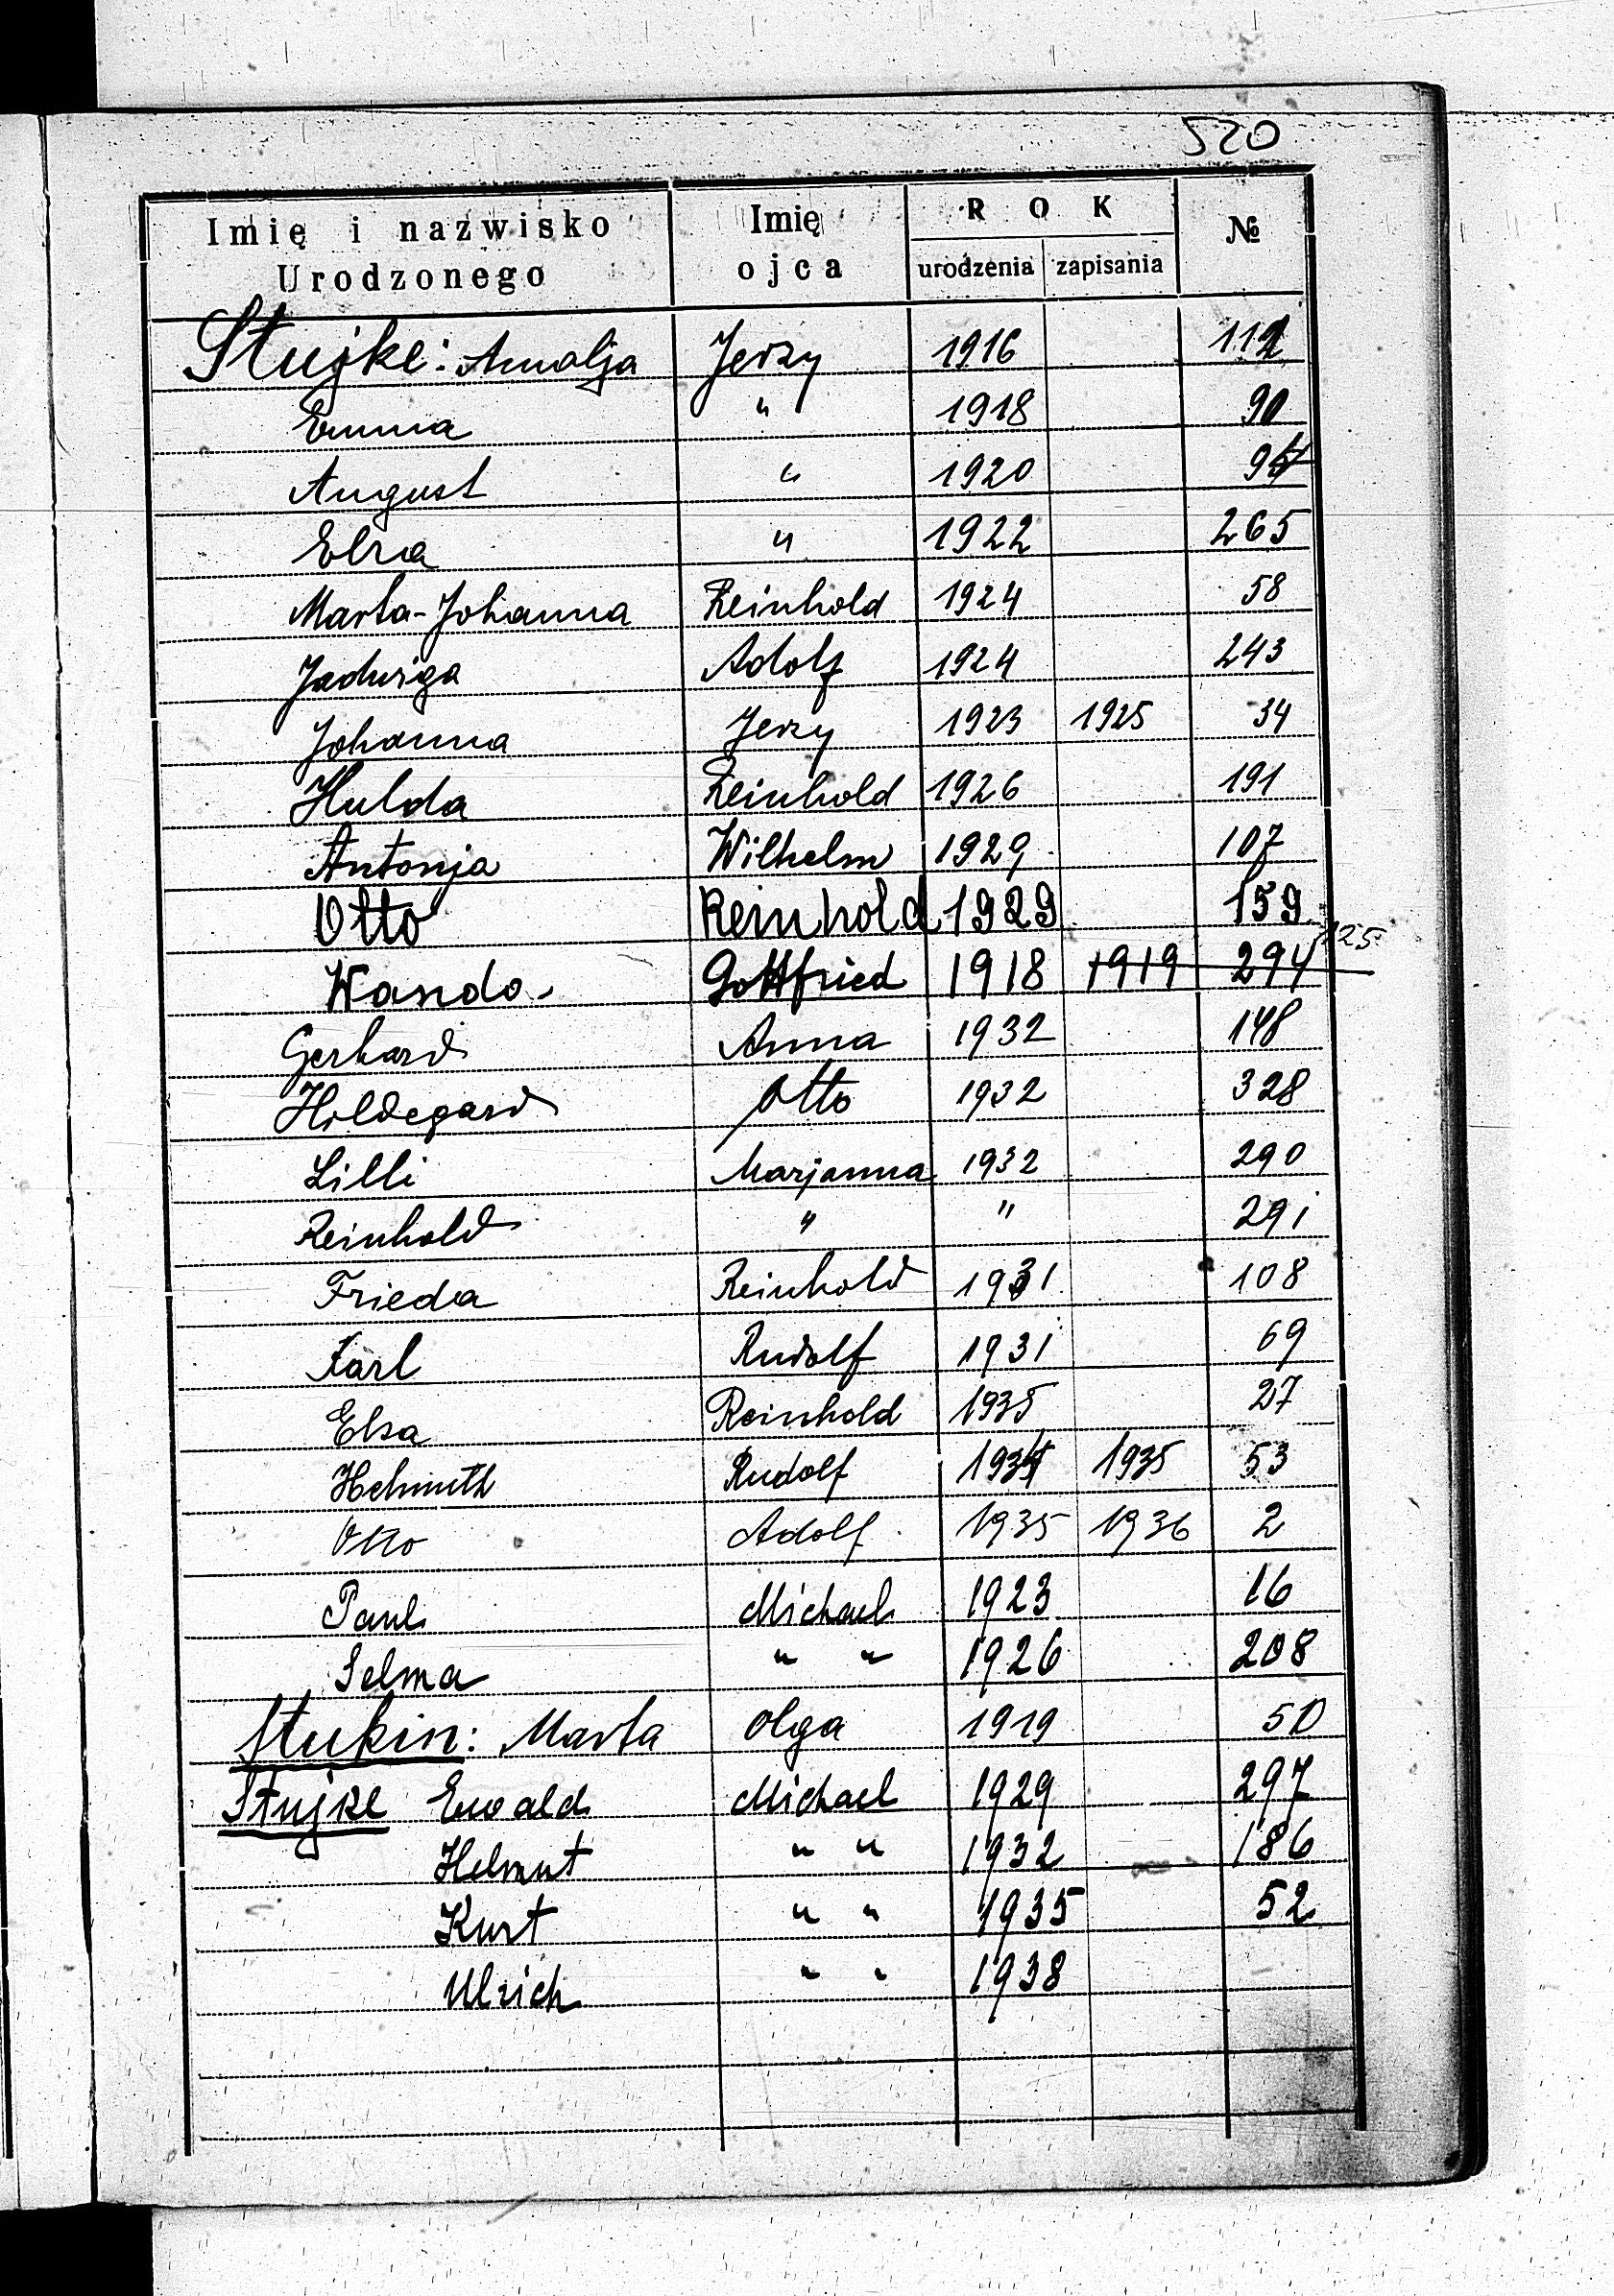 520
Imię i nazwisko Urodzonego Imię ojca ROK urodzenia zapisania №
Stujke: Amalja Jerzy 1916 112
Emma " 1918 90
August " 1920
Elza " 1922 265
Marta-Johanna Reinhold 1924 58
Jadwiga Adolf 1924 243
Johanna Jerzy 1923 1925 34
Hulda Reinhold 1926 191
Antonja Wilhelm 1929 107
Otto Reinhold 1929 159
Wanda Gottfried 1918 1919 294 125
Gerhard Anna 1932 148
Hildegard Otto 1932 328
Lilli Marjanna 1932 290
Reinhold " " 291
Frieda Reinhold 1931 108
Karl Rudolf 1931 69
Elsa Reinhold 1935 27
Helmuth Rudolf 1934 1935 53
Otto Adolf 1935 1936 2
Paul Michael 1923 16
Selma " " 1926 208
Stukin: Marta Olga 1919 50
Stujke Ewald Michael 1929 297
Helmut " " 1932 186
Kurt " " 1935 52
Ulrich " " 1938